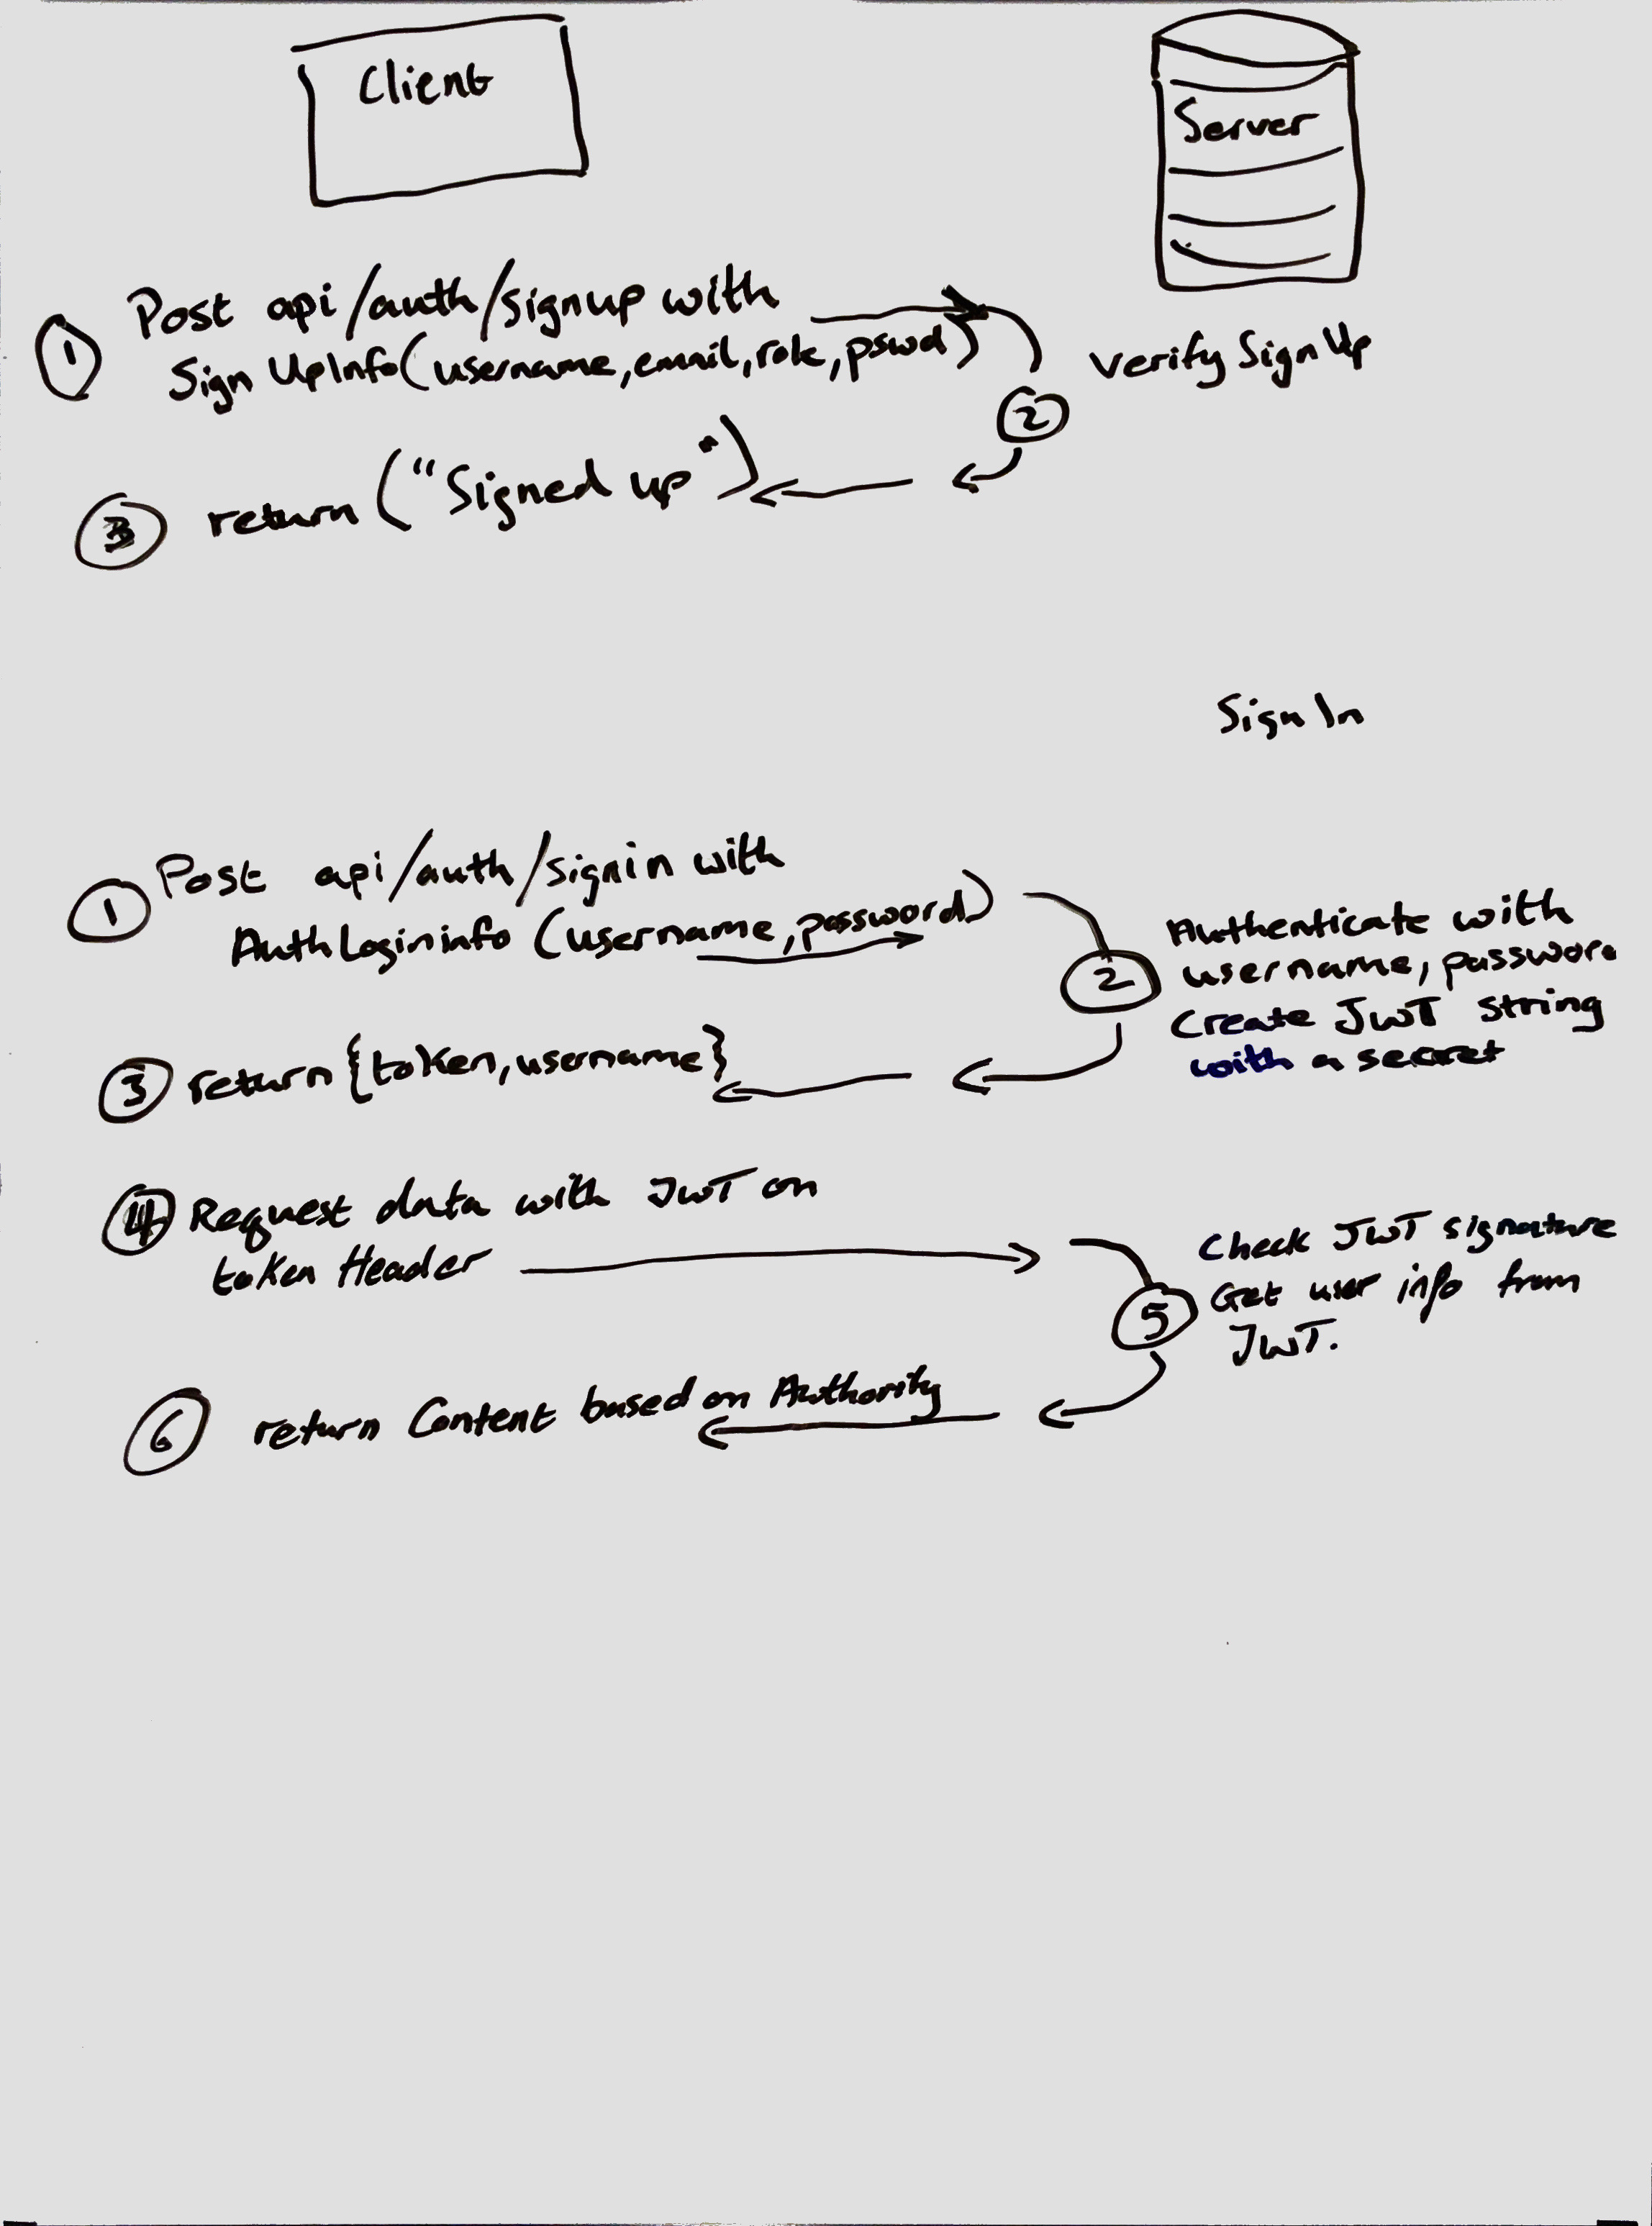 Client
Server
1 Post api/auth/signup with
Sign UpInfo(username,email,role,pswd)
Verify Sign Up
2
3 return ("Signed up")
Sign In
1 Post api/auth/signin with
Auth Logininfo (username,password)
2
Authenticate with
username, passwor
Create JWT string
with a secret
3 return {token,username}
4 Request data with JWT on
token Header
Check JWT signature
5 Get user info from
JWT.
6 return Content based on Authority